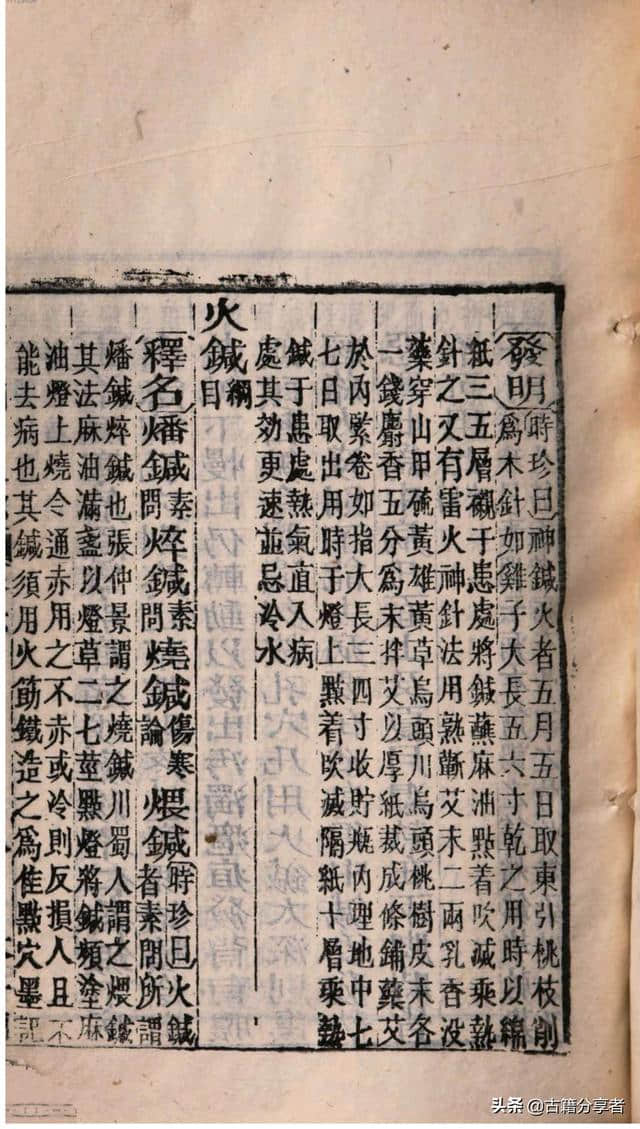 發明時珍曰神鍼火者五月五日取東引桃枝削
為木針如雞子大長五六寸乾之用時以綿
紙三五層襯于患處將鍼蘸麻油點着吹滅乘熱
針之又有雷火神針法用熟蘄艾末二兩乳香沒
藥穿山甲硫黃雄黃草烏頭川烏頭桃樹皮末各
一錢麝香五分為末拌艾以厚紙裁成條鋪藥艾
於內緊卷如指大長三四寸收貯瓶內理地中七
七日取出用時于燈上點着吹滅隔紙十層乘熱
鍼于患處熱氣直入病
處其効更速並忌冷水
火鍼綱目
釋名燔鍼素問焠鍼素問燒鍼傷寒論煨鍼時珍曰火鍼者素問所謂
燔鍼焠鍼也張仲景謂之燒鍼川蜀人謂之煨鍼
其法麻油滿盞以燈草二七莖點燈將鍼頻塗麻
油燈上燒令通赤用之不赤或冷則反損人且不
能去病也其鍼須用火筋鐵造之為佳點穴墨記
头条 @古籍分享者